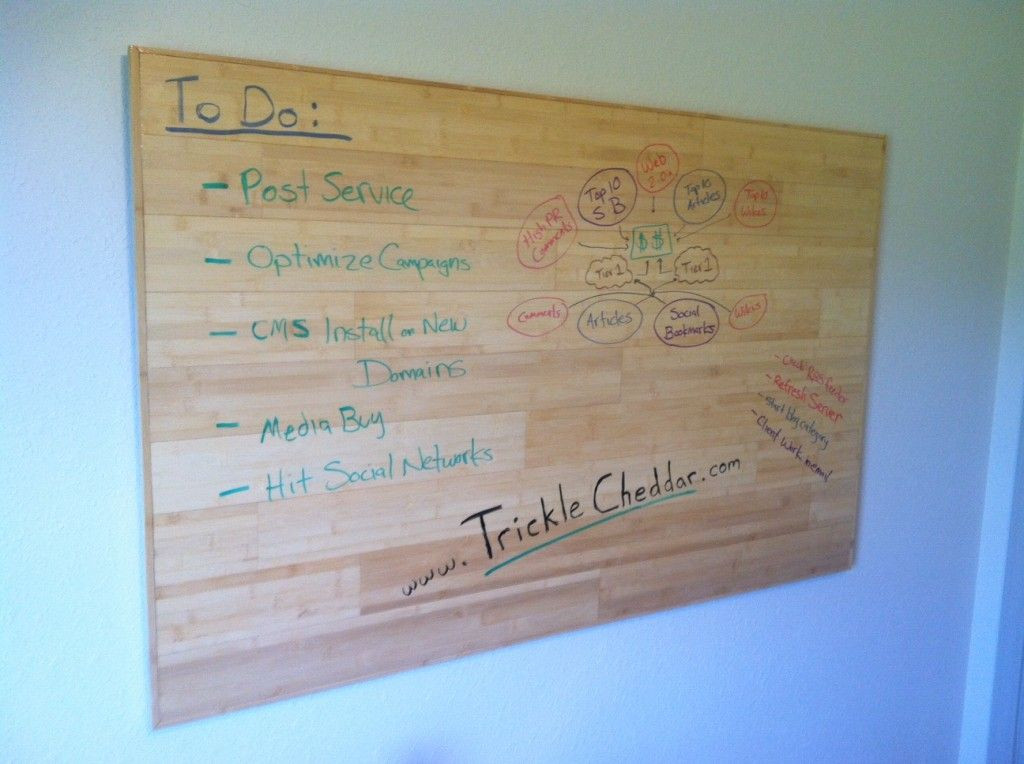 To Do:
- Post Service
- Optimize Campaigns
- CMS Install on New
Domains
- Media Buy
- Hit Social Networks
Web
2.0s
Top 10
SB
Top 10
Articles
Top 10
Wikis
High PR
Comments
$$
Tier 1
Tier 1
Comments
Articles
Social
Bookmarks
Wikis
- Refresh Server
- Start blog category
- Client Work
www.TrickleCheddar.com